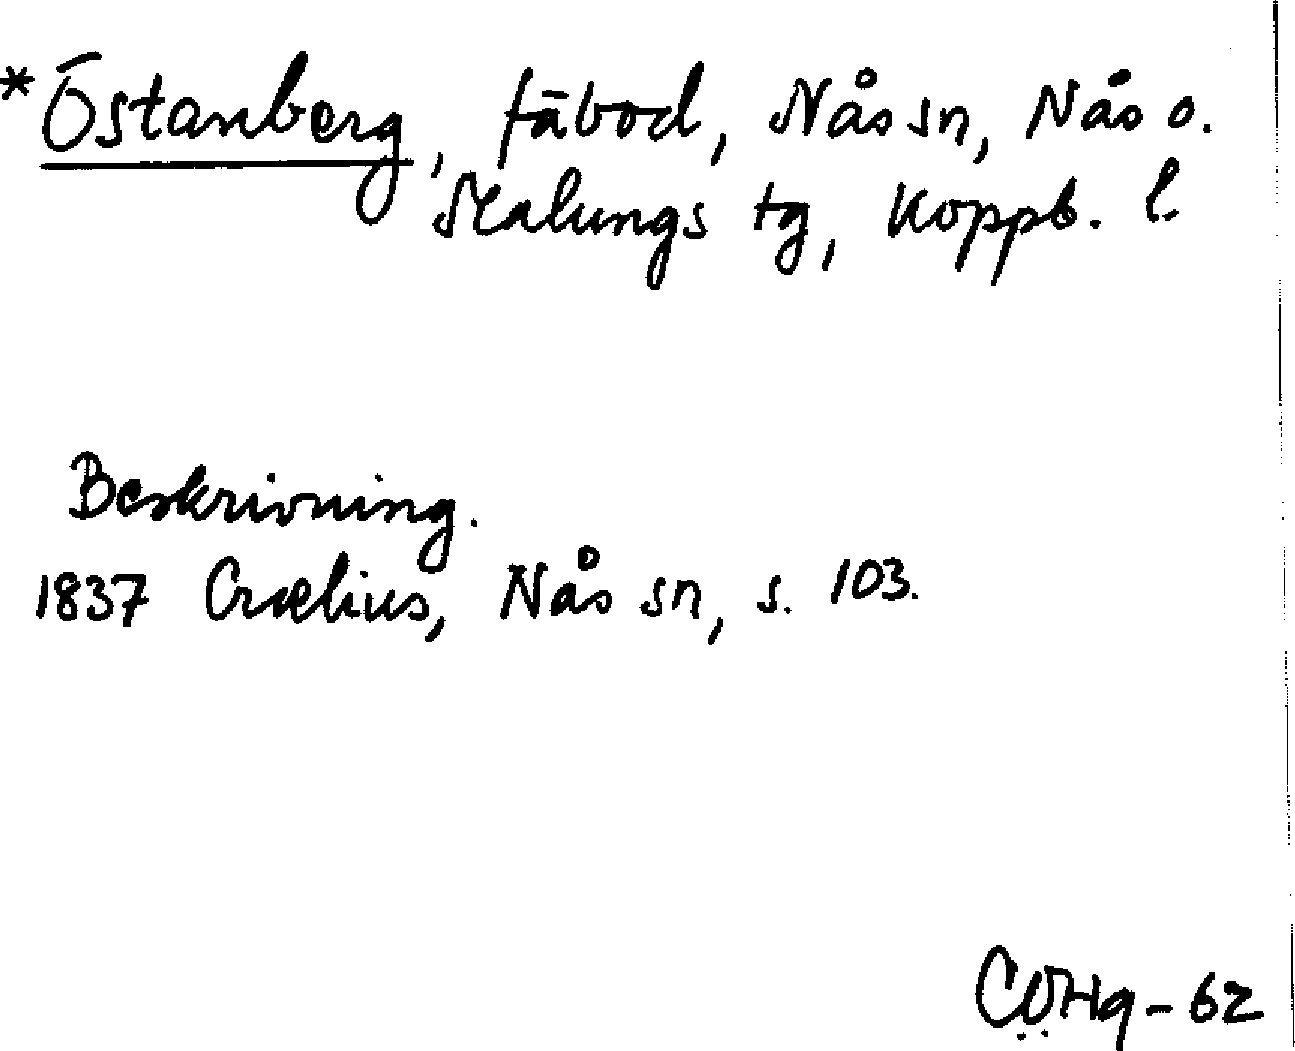 *Östanberg, fäbod, Nås sn, Nås o.
Malungs tg, Koppb. l.
Beskrivning.
1837 Crælius, Nås sn, s. 103.
CÖHg-62